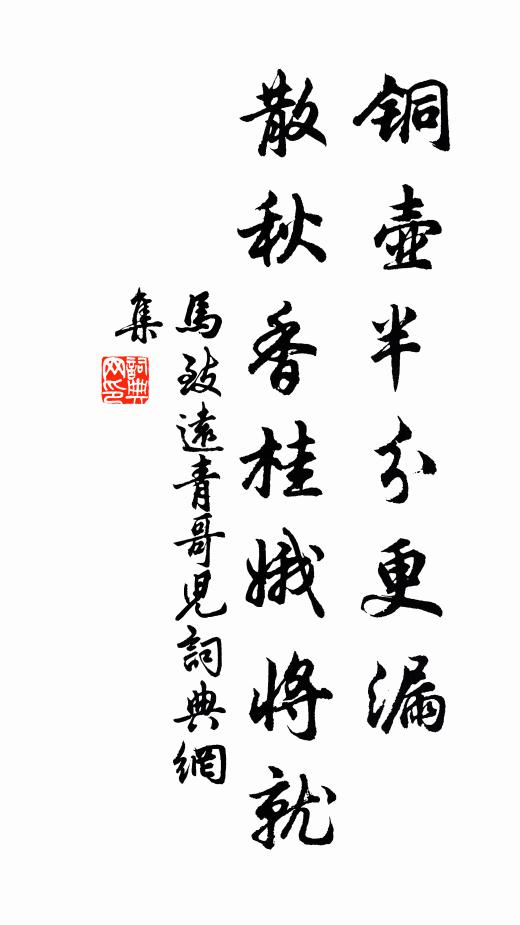 铜壶半分更漏
散秋香桂娥将就
馬致遠青哥兒詞典網
集
詞典
网印